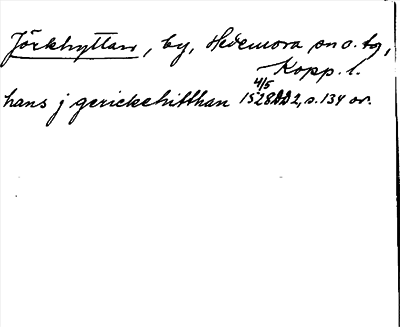 Jörkhyttan, by, Hedemora sn o. tg,
Kopp. l.
hans j gerickehitthan 4/5 1528 DD 2, s. 134 or.